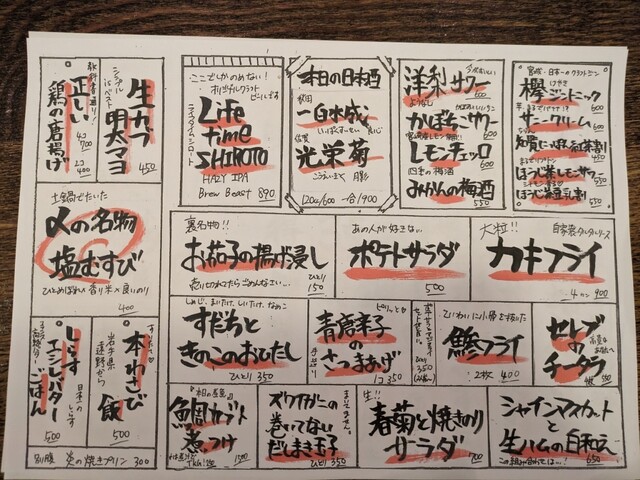 生カブ
明太マヨ
シンプル
is ベスト
450
教科書通り!
正しい
鶏の唐揚げ
4コ 700
2コ 400
ここでしかのめない!
オリジナルクラフト
ビールです
Life
time
SHIROTO
ライフタイムシロート
HAZY IPA
Brew Beast 890
本日の日本酒
秋田
一白水成
いっぱくすいせい 良心
佐賀
光栄菊
こうえいぎく 月影
120cc/600 一合/900
洋梨サワー
ようなし
600
かぼちゃサワー
600
レモンチェッロ
600
四季の梅酒
みかんの梅酒
550
宮城・日本一のクラフトジン
欅ジントニック
けやき
600
サニークリーム
600
ほうじ茶レモンサワー
550
ほうじ茶豆乳割
550
土鍋でたいた
〆の名物
塩むすび
ひとめぼれ × 香り米 × 良いのり
400
裏名物!!
お茄子の揚げ浸し
売り切れてたらごめんなさい…
ひとり
150
あの人が好きな
ポテトサラダ
500
大粒!!
自家製タルタルソース
カキフライ
4コ 900
すりたて
本わさび
飯
岩手県
遠野から
500
しらす
エシレバター
ごはん
日本一の
しらす
500
しめじ、まいたけ、しいたけ、なめこ
すだちと
きのこのおひたし
ひとり 350
ピリッと
青唐辛子
の
さつまあげ
手作り
ひとり 350
ていねいに小骨を抜いた
鯵フライ
2枚 400
セレブ
の
チータラ
500
本日の煮魚
鯛カブト
煮つけ
ズワイガニの
巻いてない
だしまき玉子
まいてません。
ひとり 350
生!!
春菊と焼きのり
サラダ
700
シャインマスカット
と
生ハムの白和え
この組み合わせは…!
650
別腹 炎の焼きプリン 300